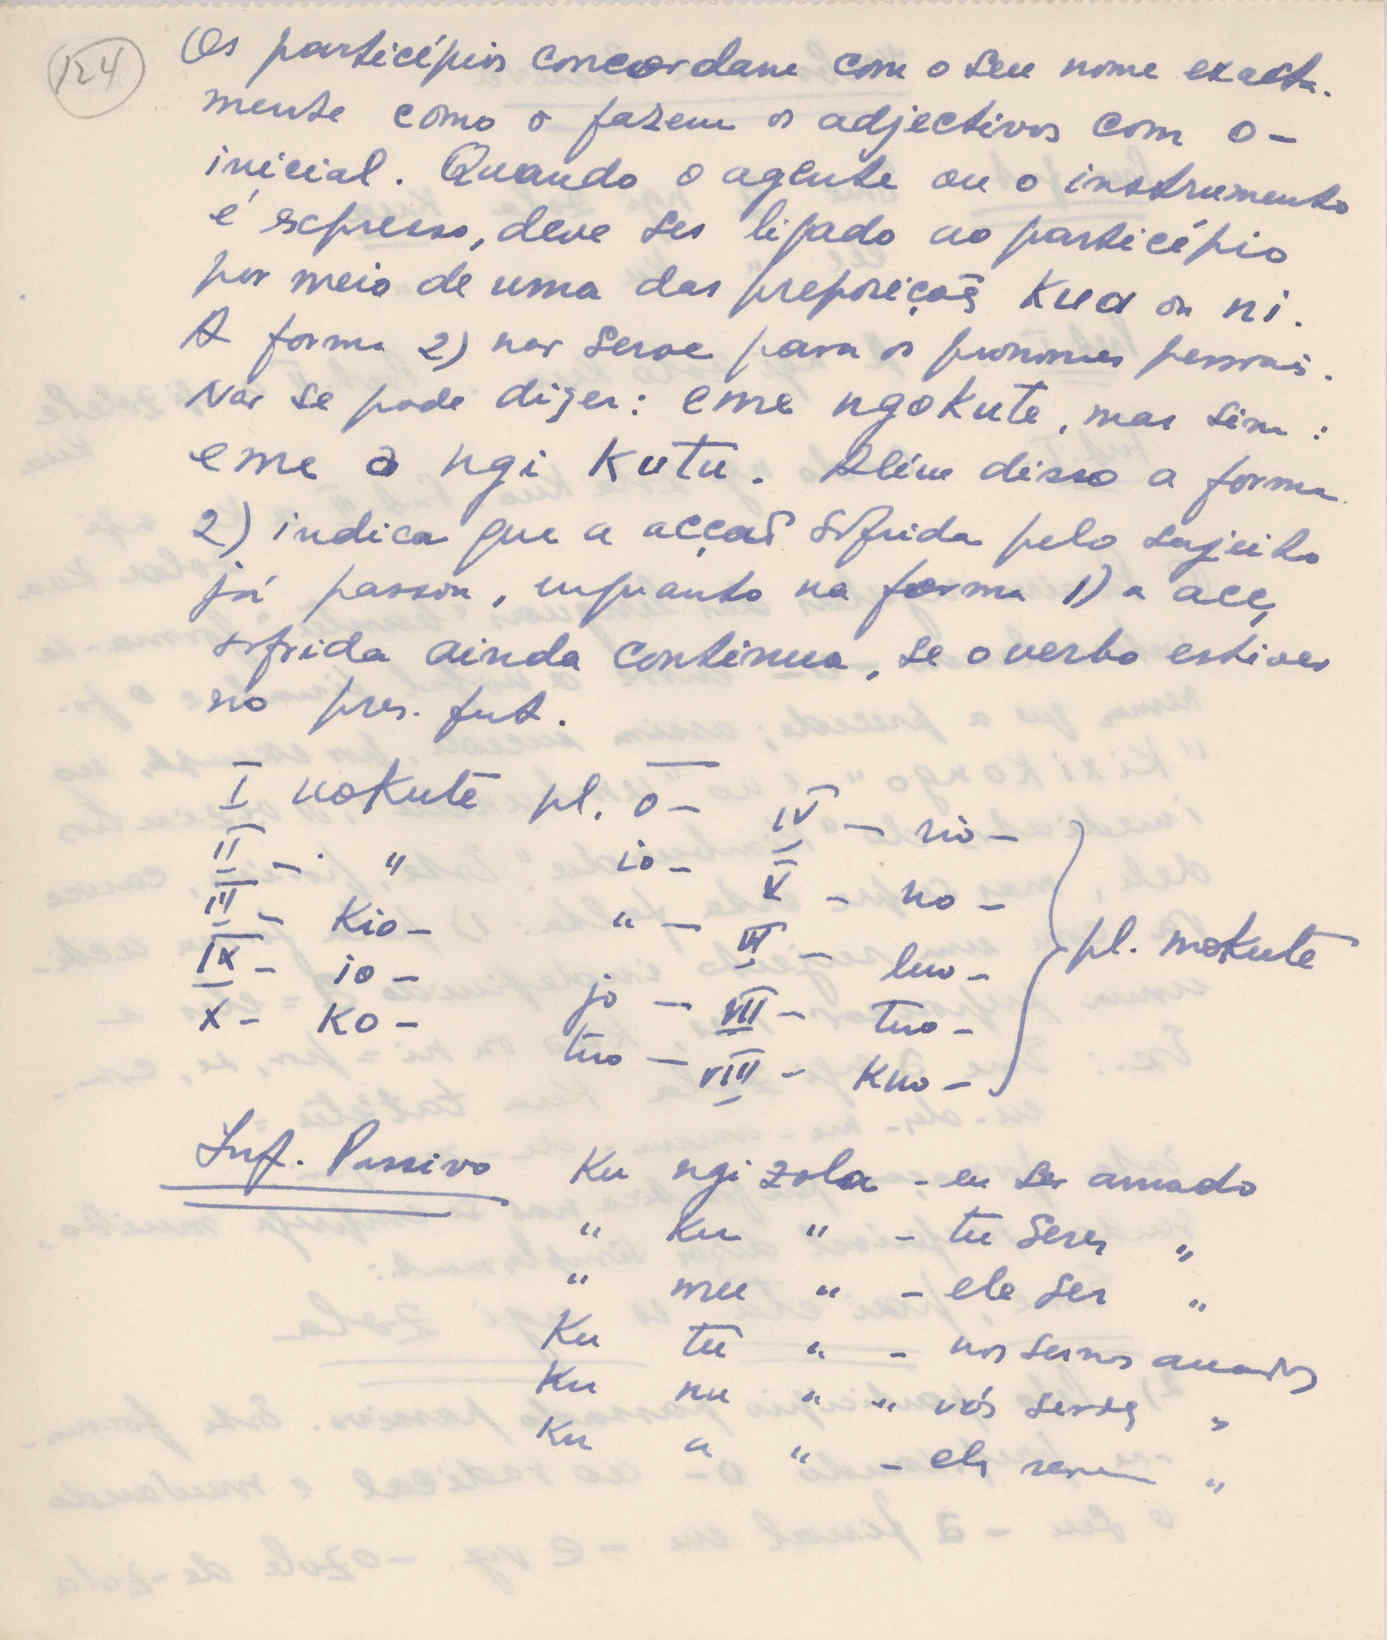 124
Os particípios concordam com o seu nome exacta-
mente como o fazem os adjectivos com o-
inicial. Quando o agente ou o instrumento
é expresso, deve ser ligado ao particípio
por meio de uma das preposições Kua ou ni.
A forma 2) não serve para os pronomes pessoais.
Não se pode dizer: eme ngokute, mas sim:
eme a ngi Kutu. Além disso a forma
2) indica que a acção sofrida pelo sujeito
já passou, enquanto na forma 1) a acç
sofrida ainda continua, se o verbo estiver
no pres. fut.
I uokute pl. o- IV - rio-
II - " io- V - uo-
III - Kio- " - VI - luo-
IX - io- jo - VII - tuo-
X - Ko- tuo - VIII - Kuo-
pl. mokute
Inf. Passivo Ku ngi zola - eu ser amado
" Ku " - tu seres "
" mu " - ele ser "
Ku tu " - nos sermos amados
Ku nu " " vós serdes "
Ku a " - eles serem "